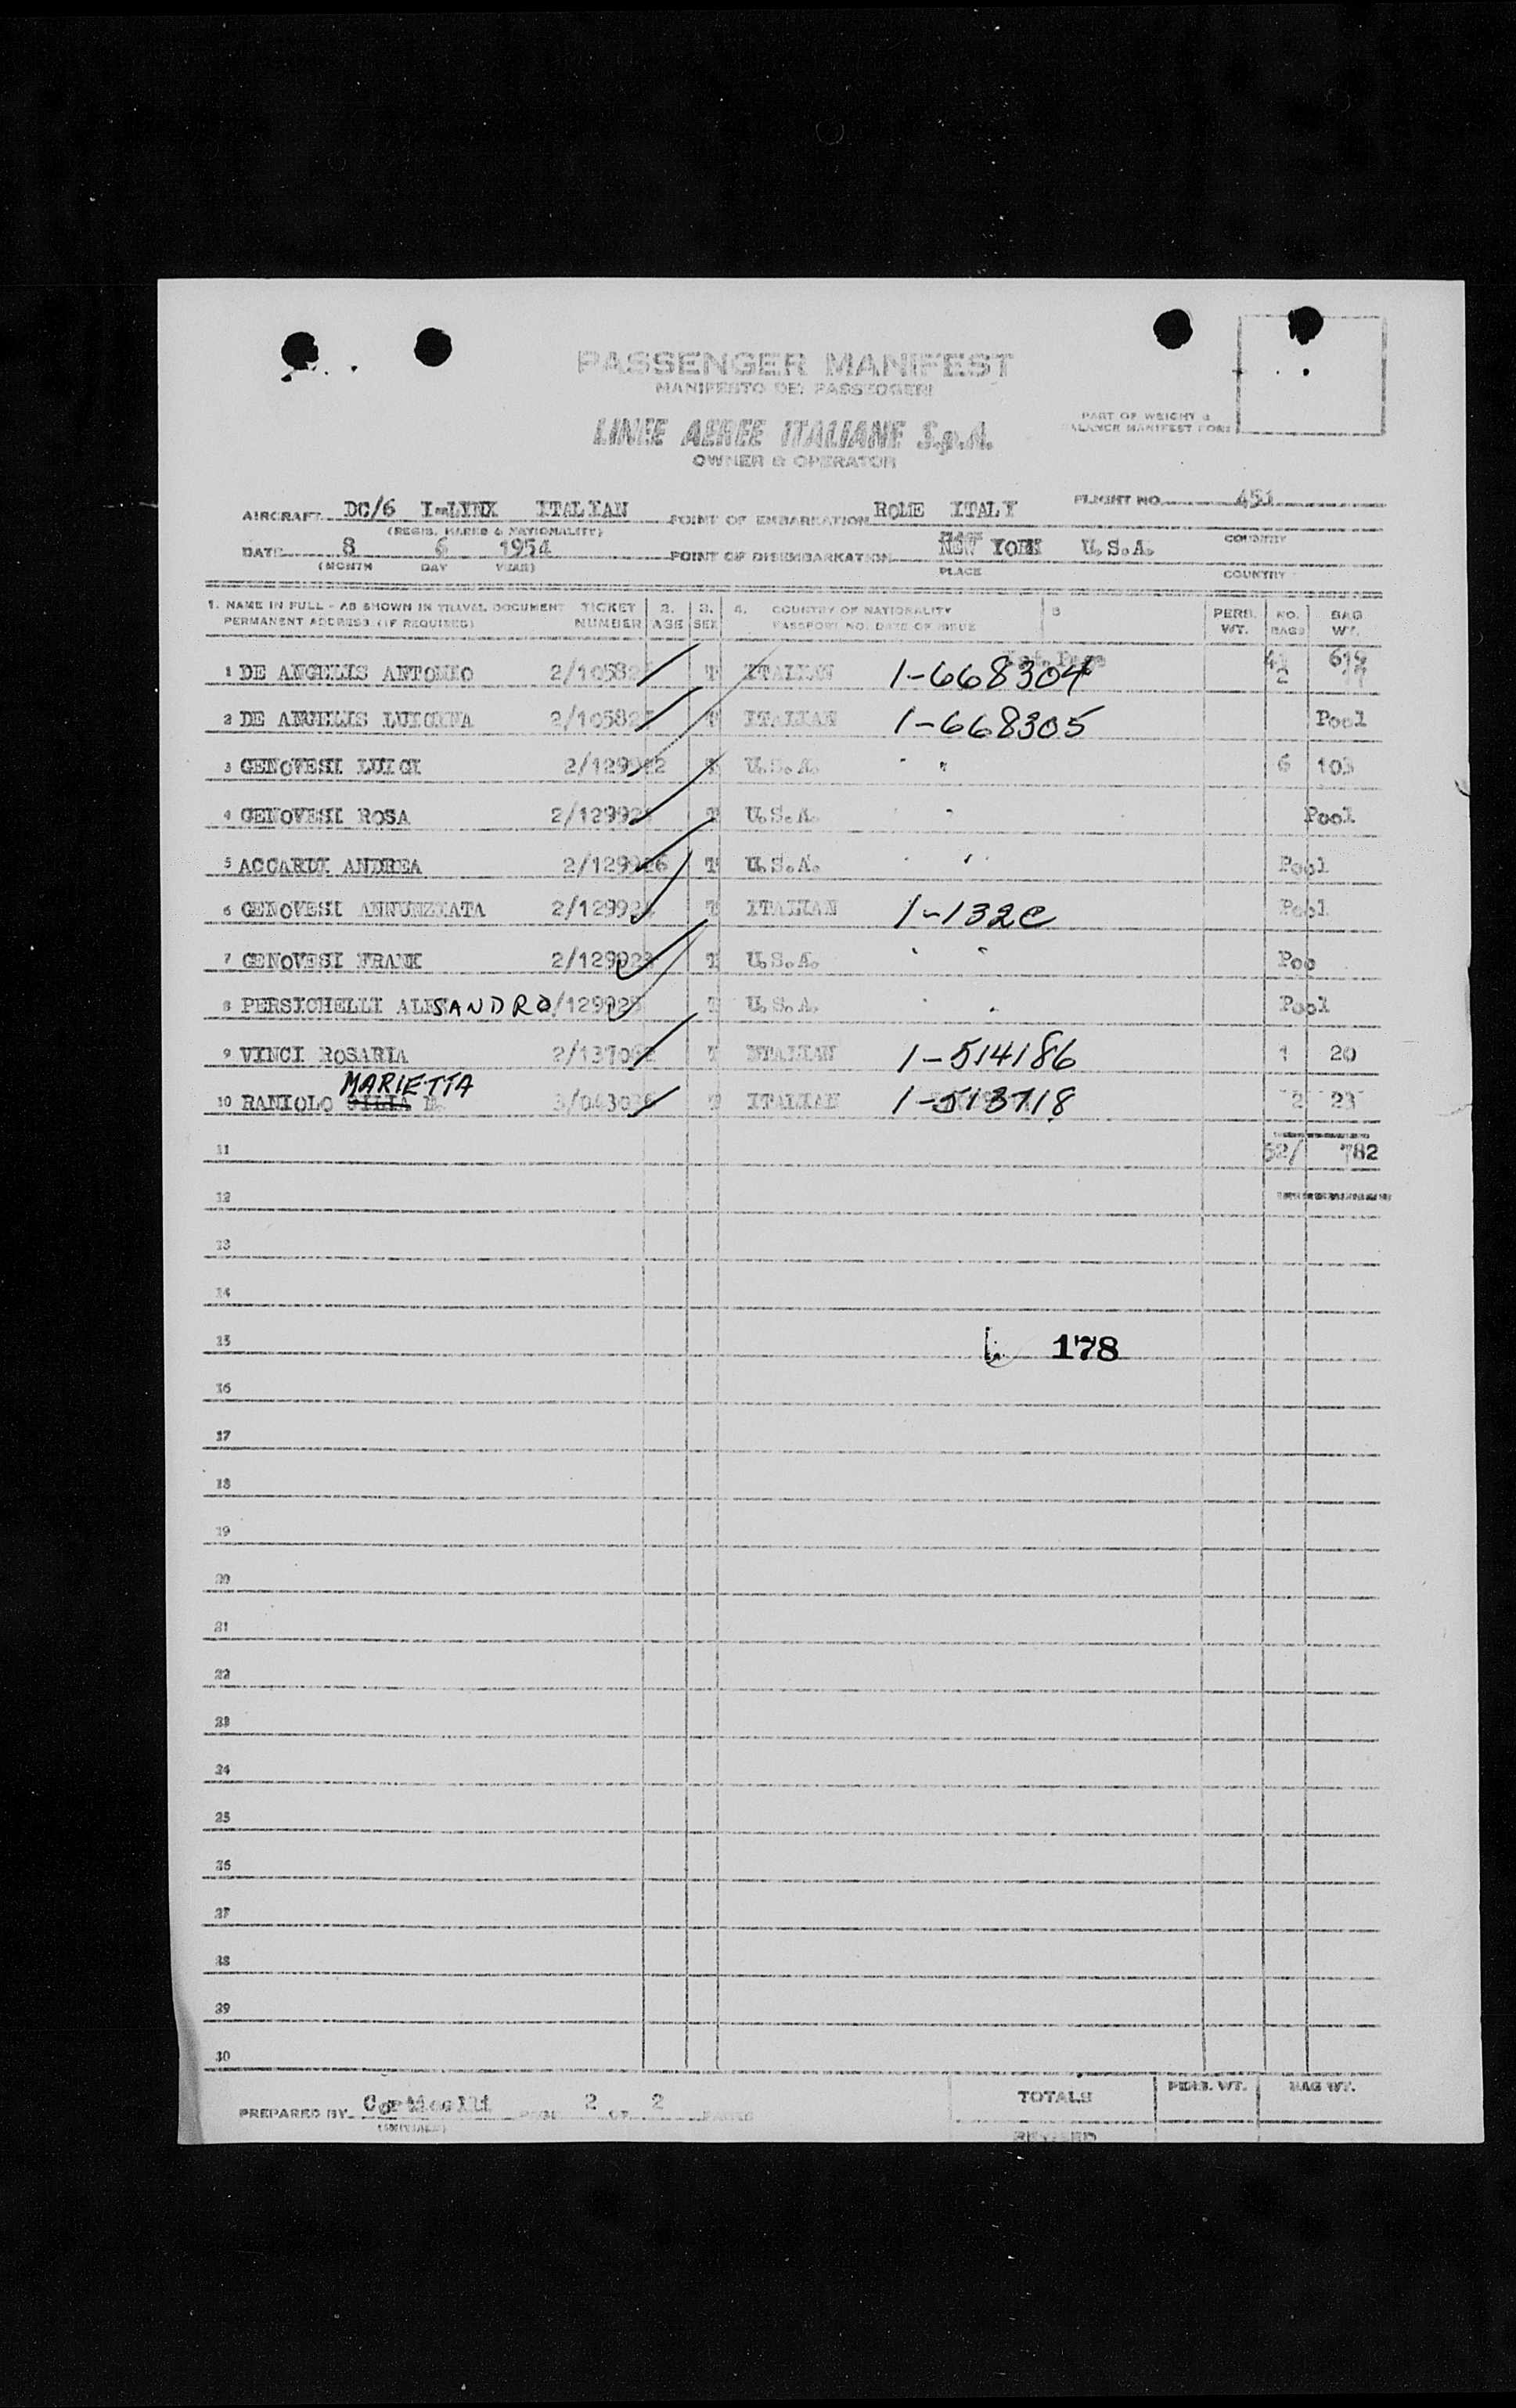 PASSENGER MANIFEST
MANIFESTO DEI PASSEGGERI
LINEE AEREE ITALIANE S.p.A.
OWNER & OPERATOR
PART OF WEIGHT &
BALANCE MANIFEST FORM
AIRCRAFT DC/6 I-LINX ITALIAN POINT OF EMBARKATION ROME ITALY FLIGHT NO. 451
(REGIS. MARKS & NATIONALITY) PLACE COUNTRY
DATE 8 6 1954 POINT OF DISEMBARKATION NEW YORK U.S.A.
(MONTH DAY YEAR) PLACE COUNTRY
1. NAME IN FULL - AS SHOWN IN TRAVEL DOCUMENT TICKET 2. 3. 4. COUNTRY OF NATIONALITY 5 PERS. NO. BAG
PERMANENT ADDRESS (IF REQUIRED) NUMBER AGE SEX PASSPORT NO. DATE OF ISSUE WT. BAGS WT.
1 DE ANGELIS ANTONIO 2/10582 T ITALIAN 1-668304 2
2 DE ANGELIS 2/10582 T ITALIAN 1-668305 Pool
3 GENOVESI LUIGI 2/129922 T U.S.A. 6 103
4 GENOVESI ROSA 2/12992 T U.S.A. Pool
5 ACCARDI ANDREA 2/129926 T U.S.A. Pool
6 GENOVESI ANNUNZIATA 2/12992 T ITALIAN 1-132e Pool
7 GENOVESI FRANK 2/12992 T U.S.A. Poo
8 PERSICHELLI ALESSANDRO /129925 T U.S.A. Pool
9 VINCI ROSARIA 2/1370 T ITALIAN 1-514186 1 20
MARIETTA
10 RANIOLO 3/0430 T ITALIAN 1-513718 2 23
11 52/ 782
12
13
14
15 178
16
17
18
19
20
21
22
23
24
25
26
27
28
29
30
PREPARED BY Corticelli PAGE 2 OF 2 PAGES TOTALS PERS. WT. BAG WT.
(INITIALS) REVISED